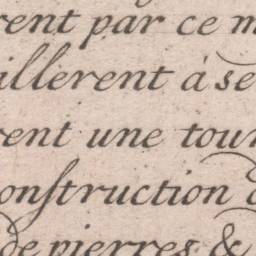 rent par ce m
illerent à se
rent une tour
onſtruction d
de pierres &